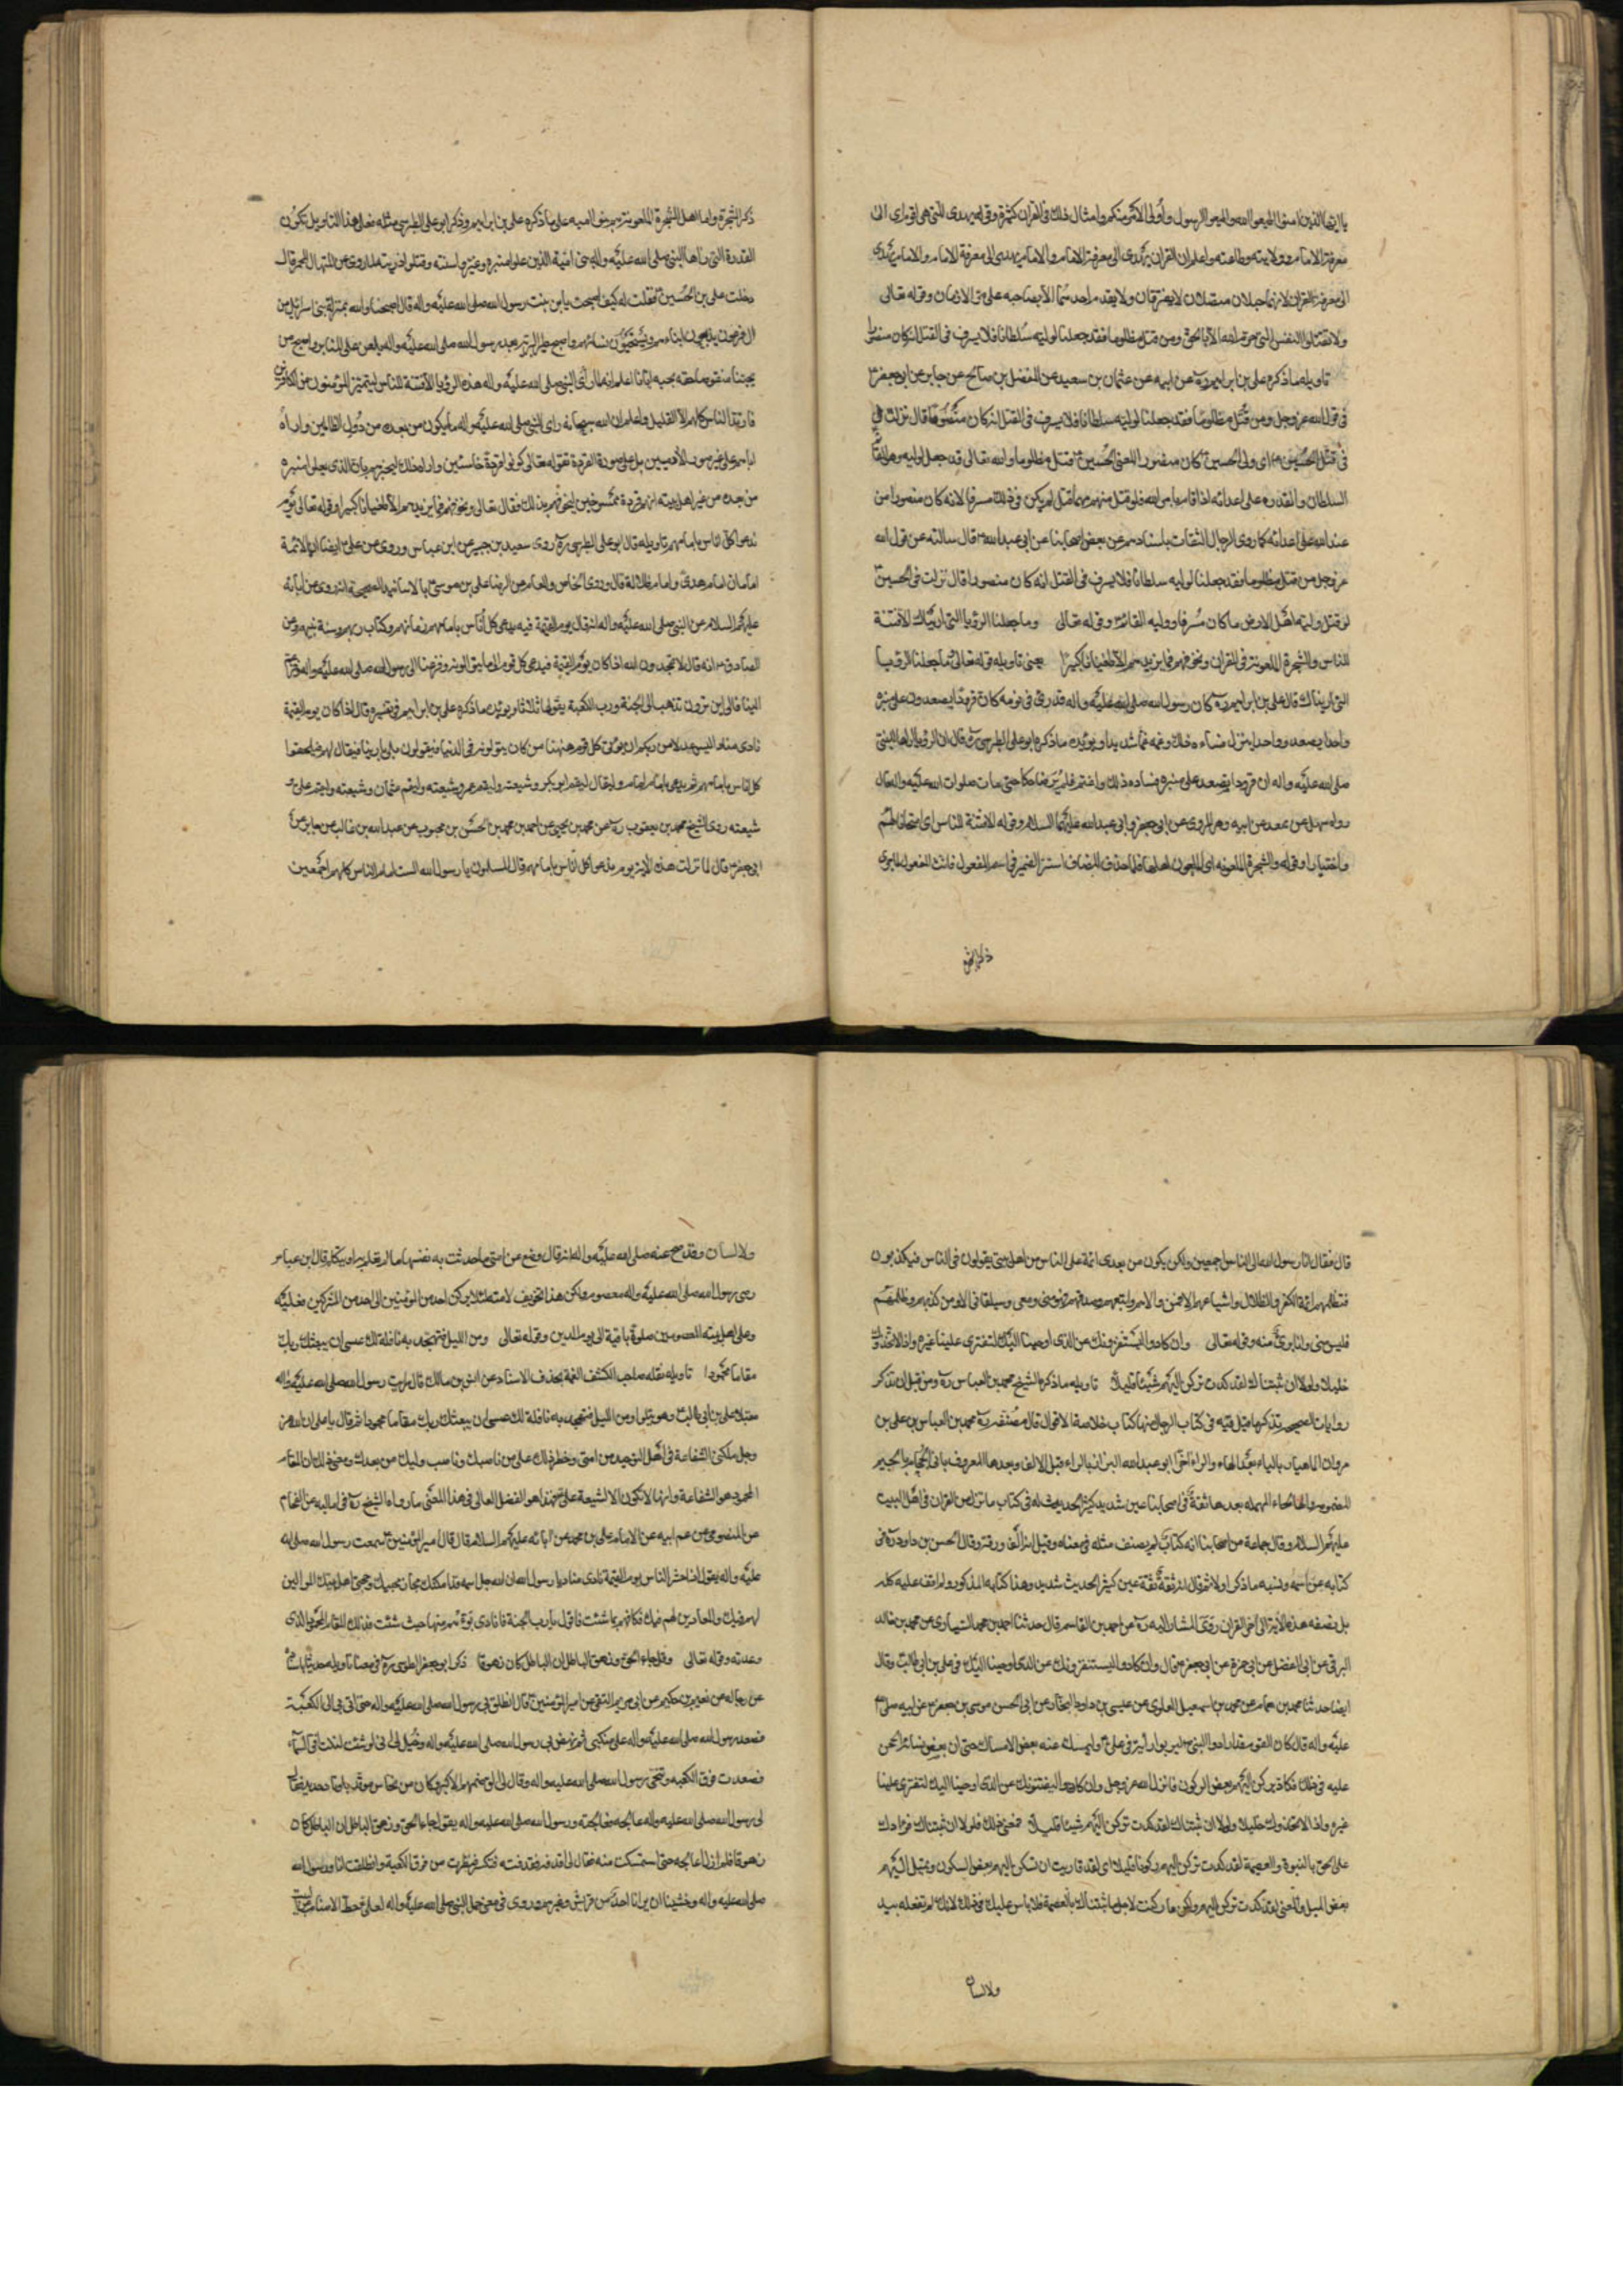 يا ايها الذين امنوا اطيعوا الله واطيعوا الرسول وأولى الأمر منكم وامثال ذلك فى القران كثيرة وقوله يهدى للتى هى اقوم اى الى
معرفة الامام وولايته وطاعته واعلم ان القران يهدى الى معرفة الامام والامام يهدى الى معرفة الامام والامام يهدى
الى معرفة القران لانهما حبلان متصلان لا يفترقان ولا يقدم احدهما الا بصاحبه على مر الازمان وقوله تعالى
ولا تقتلوا النفس التى حرم الله الا بالحق ومن قتل مظلوما فقد جعلنا لوليه سلطانا فلا يسرف فى القتل انه كان منصورا
تاويله ما ذكره على بن ابراهيم ره عن ابيه عن عثمان بن سعيد عن المفضل بن صالح عن جابر عن ابى جعفر ع
فى قول الله عز وجل ومن قتل مظلوما فقد جعلنا لوليه سلطانا فلا يسرف فى القتل انه كان منصورا قال نزلت
فى قتل الحسين ع اى ولى الحسين كان منصورا المعنى الحسين ع قتل مظلوما والله تعالى قد جعل لوليه وهو القائم
السلطان والقدره على اعدائه اذا قام بامر الله فلو قتل منهم مهما قتل لم يكن فى ذلك مسرفا لانه كان منصورا من
عند الله على اعدائه كما روى الرجال الثقات باسنادهم عن بعض اصحابنا عن ابى عبد الله ع قال سالته عن قول الله
عز وجل من قتل مظلوما فقد جعلنا لوليه سلطانا فلا يسرف فى القتل انه كان منصورا قال نزلت فى الحسين ع
لو قتل وليه اهل الارض ما كان مسرفا ووليه القائم ع وقوله تعالى وما جعلنا الرؤيا التى اريناك الا فتنة
للناس والشجرة الملعونة فى القران ونخوفهم فما يزيدهم الا طغيانا كبيرا معنى تاويله قوله تعالى وما جعلنا الرؤيا
التى اريناك قال على بن ابراهيم ره كان رسول الله صلى الله عليه واله قد رأى فى نومه كان قرودا يصعدون على منبره
واحدا يصعد وواحدا ينزل فساءه ذلك وغمه غما شديدا ويؤيده ما ذكره ابو على الطبرسى ره قال ان الرؤيا اراها النبى
صلى الله عليه واله ان قرودا يصعد على منبره فساءه ذلك واغتم فلم يُرَ ضاحكا حتى مات صلوات الله عليه واله قال
رواه سهل عن سعد عن ابيه وهو المروى عن ابى جعفر وابى عبد الله عليهما السلام وقوله الا فتنة للناس اى امتحانا لهم
واختبارا وقوله والشجرة الملعونه اى الملعون اهلها فلما حذف المضاف استتر الضمير فى اسم المفعول فانث المفعول لما جرى
ذكر الشجرة
ذكر الشجرة واما اهل الشجرة الملعونة هم بنو اميه على ما ذكره على بن ابراهيم وذكر ابو على الطبرسى مثله فعلى هذا التاويل تكون
القردة التى راها النبى صلى الله عليه واله هى بنى امية الذين علوا منبره وغيروا سنته وقتلوا ذريته لما روى عن المنهال بن عمرو قال
دخلت على بن الحسين ع فقلت له كيف اصبحت يابن بنت رسول الله صلى الله عليه واله قال اصبحنا والله بمنزلة بنى اسرائيل من
ال فرعون يذبحون ابناءهم ويستحيون نسائهم واصبح خير البرية بعد رسول الله صلى الله عليه واله يلعن على المنابر واصبح من
يحبنا منقوصا حقه بحبه ايانا اعلم انه لما رأى النبى صلى الله عليه واله هذه الرؤيا الا فتنة للناس ليتميز المؤمنون من الكافرين
فارتد الناس كلهم الا القليل واعلم ان الله سبحانه راى النبى صلى الله عليه واله ما يكون من بعده من دُول الظالمين واراهُ
اياهم على غير صورة الآدميين بل على صورة القردة لقوله تعالى كونوا قردة خاسئين واراه ذلك ليخبرهم بان الذى يعلى منبره
من بعده من غير اهل بيته انهم قردة ممسوخين ليخوفهم بذلك فقال تعالى ونخوفهم فما يزيدهم الا طغيانا كبيرا وقوله تعالى يوم
ندعوا كل اناس بامامهم تاويله قال ابو على الطبرسى ره روى سعيد بن جبير عن ابن عباس وروى عن على ع ايضا ان الائمة
امامان امام هدىً وامام ضلالة قال وروى الخاص والعام عن الرضا على بن موسى ع بالاسانيد الصحيحة انه روى عن ابائه
عليهم السلام عن النبى صلى الله عليه واله انه قال يوم القيمة فيه يدعى كل أُناس بامام زمانهم وكتاب ربهم وسنة نبيهم وعن
الصادق ع انه قال لا تحمدون الله اذا كان يوم القيمة فيدعى كل قوم الى ما يتولونه وفزعنا الى رسول الله صلى الله عليه واله وفزعتم
الينا فالى اين ترون نذهب الى الجنة ورب الكعبة يقولها ثلاثا ويؤيده ما ذكره على بن ابراهيم فى تفسيره قال اذا كان يوم القيمة
نادى مناد اليس عدلا من ربكم ان يولى كل قوم هنهنا من كان يتولونه فى الدنيا فيقولون بلى يا ربنا فيقال لهم فيلحقوا
كل اناس بامامهم ثم يدعى بامام امام ويقال ليقم ابو بكر وشيعته وليقم عمر وشيعته وليقم عثمان وشيعته وليقم على و
شيعته روى الشيخ محمد بن يعقوب ره عن محمد بن يحيى عن احمد بن محمد بن الحسن بن محبوب عن عبد الله بن غالب عن جابر عن
ابى جعفر ع قال لما نزلت هذه الاية يوم ندعو كل اناس بامامهم قال المسلمون يا رسول الله الست امام الناس كلهم اجمعين
قال فقال انا رسول الله الى الناس اجمعين ولكن يكون من بعدى ائمة على الناس من اهل بيتى يقولون فى الناس فيكذبون
فتظلمهم ائمة الكفر والضلال واشياعهم الا فمن والاهم واتبعهم وصدقهم فهو منى ومعى وسيلقانى الا ومن كذبهم وظلمهم
فليس منى وانا برئ منه وقوله تعالى وان كادوا ليستفزونك عن الذى اوحينا اليك لتفترى علينا غيره واذا لاتخذوك
خليلا ولولا ان ثبتناك لقد كدت تركن اليهم شيئا قليلا تاويله ما ذكره الشيخ محمد بن العباس ره ومن قبل ان نذكر
روايات الصحيح نذكر ما قيل فيه فى كتاب الرجال منها كتاب خلاصة الاقوال قال مصنفه ره محمد بن العباس بن على بن
مروان الماهيار بالياء بعد الهاء والراء اخرا ابو عبد الله البزاز بالزاء قبل الالف وبعدها المعروف بابن الحجام بالجيم
المضمومه والحاء المهمله بعدها ثقة فى اصحابنا عين شديد كثير الحديث له فى كتاب ما نزل من القران فى اهل البيت
عليهم السلام وقال جماعة من اصحابنا انه كتاب لم يصنف مثله فى معناه وقيل انه الف ورقة وقال الحسن بن داود ره فى
كتابه عن اسمه ونسبه ما ذكر اولا ثم قال انه ثقة ثقة عين كثير الحديث شديد وهذا كتابه المذكور ولم اقف عليه كله
بل نصفه هذه الاية الى اخر القران روى المشار اليه ره عن احمد بن القاسم قال حدثنا احمد بن محمد السيارى عن محمد بن خالد
البرقى عن ابن الفضل عن ابى حمزة عن ابى جعفر ع قال وان كادوا ليستنفزونك عن الذى اوحينا اليك فى على بن ابى طالب وقال
ايضا حدثنا محمد بن همام عن محمد بن اسمعيل العلوى عن عيسى بن داود النجار عن ابى الحسن موسى بن جعفر ع عن ابيه صلى الله
عليه واله قال كان القوم قد ارادوا النبى ليريبوا رأيه فى على ع وليمسك عنه بعض الامساك حتى ان بعض نسائه الحن
عليه فى ذلك فكاد يركن اليهم بعض الركون فانزل الله عز وجل وان كادوا ليفتنونك عن الذى اوحينا اليك لتفترى علينا
غيره واذا لاتخذوك خليلا ولولا ان ثبتناك لقد كدت تركن اليهم شيئا قليلا فمعنى ذلك فلولا ان ثبتناك فؤادك
على الحق بالنبوة والعصمة لقد كدت تركن اليهم ركونا قليلا اى لقد قاربت ان تسكن اليهم بعض السكون وتميل اليهم
بعض الميل والمعنى لقد كدت تركن اليهم ولكن ما ركنت لاجل ما ثبتناك بالعصمة فلا باس عليك فى ذلك لانك لم تفعله بيد
ولا لسان
ولا لسان وقد صح عنه صلى الله عليه واله انه قال وضع عن امتى ما حدثت به نفسها ما لم يعمل به او يتكلم قال ابن عباس
رضى رسول الله صلى الله عليه واله معصوم ولكن هذا تخويف لامته لئلا يركن احد من المؤمنين الى احد من المشركين فعليه
وعلى اهل بيته المعصومين صلوة باقية الى يوم الدين وقوله تعالى ومن الليل فتهجد به نافلة لك عسى ان يبعثك ربك
مقاما محمودا تاويله نقله صاحب الكشف الغمة بحذف الاسناد عن انس بن مالك قال رايت رسول الله صلى الله عليه واله
مقبلا على على بن ابى طالب وهو يتلوا ومن الليل فتهجد به نافلة لك عسى ان يبعثك ربك مقاما محمودا ثم قال يا على ان الله عز
وجل ملكنى الشفاعة فى اهل التوحيد من امتى وحظر ذلك على من ناصبك وناصب وليك من بعدك ومعنى ذلك ان المقام
المحمود هو الشفاعة وانها لا تكون الا لشيعة على ع فهذا هو الفضل العالى فى هذا المعنى ما رواه الشيخ ره فى اماليه عن الفحام
عن المنصورى عن عم ابيه عن الامام على بن محمد عن ابائه عليهم السلام قال قال امير المؤمنين ع سمعت رسول الله صلى الله
عليه واله يقول اذا حشر الناس يوم القيمة نادى مناد يا رسول الله ان الله جل اسمه قد امكنك مجازاة محبيك ومحبى اهل بيتك الموالين
لهم فيك والمعادين لهم فيك فكافهم بما شئت فاقول يا رب الجنة فانادى بوئهم منها حيث شئت فذلك المقام المحمود الذى
وعدته وقوله تعالى وقل جاء الحق وزهق الباطل ان الباطل كان زهوقا ذكر ابو جعفر الطوسى ره فى معنى تاويله حديثا باسناده
عن رجاله عن نعيم بن حكيم عن ابى مريم الثقفى عن امير المؤمنين ع قال انطلق بى رسول الله صلى الله عليه واله حتى اتى بى الى الكعبة
فصعد رسول الله صلى الله عليه واله على منكبى ثم نهض بى رسول الله صلى الله عليه واله وخيل لى انى لو شئت لنلت افق السماء
فصعدت فوق الكعبه وتنحى رسول الله صلى الله عليه واله وقال لى الق صنمهم الاكبر وكان من نحاس موتد باوتاد حديد فقال
لى رسول الله صلى الله عليه واله عالجه فعالجته ورسول الله صلى الله عليه واله يقول جاء الحق وزهق الباطل ان الباطل كان
زهوقا فلم ازل اعالجه حتى استمكنت منه فقال لى اقذفه فقذفته فتكسر فنزلت من فوق الكعبة وانطلقت انا ورسول الله
صلى الله عليه واله وخشينا ان يرانا احد من قريش وغيرهم وروى فى معنى حمل النبى صلى الله عليه واله لعلى ع لحط الاصنام